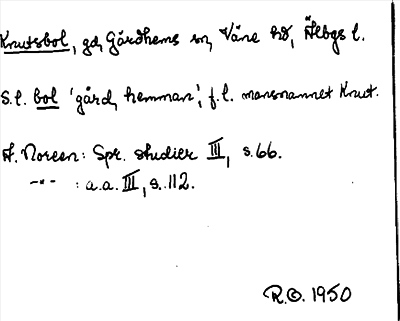 Knutsbol, gd, Gärdhems sn, Väne hd, Älbgs l.
S.l. bol 'gård, hemman', f.l. mansnamnet Knut.
A. Noreen: Spr. studier III, s.66.
-"- : a.a. III, s. 112.
R.O. 1950